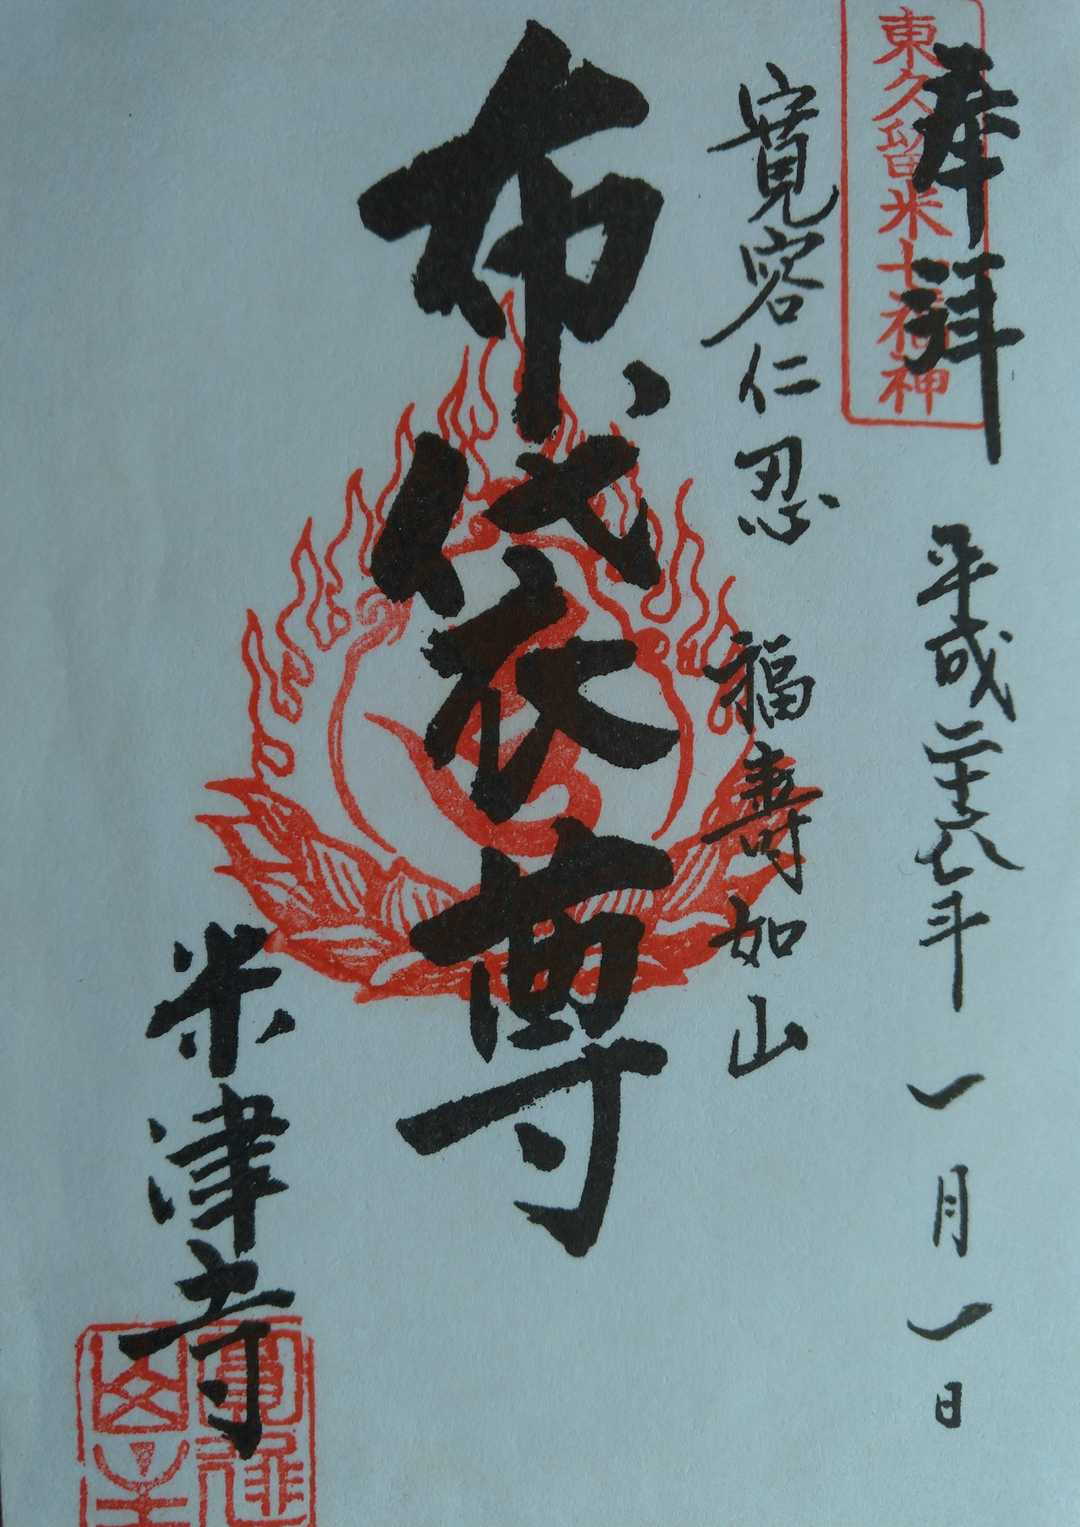 奉拝
東久留米七福神
平成二十八年 一月一日
寛容仁忍 福壽如山
布袋尊
米津寺